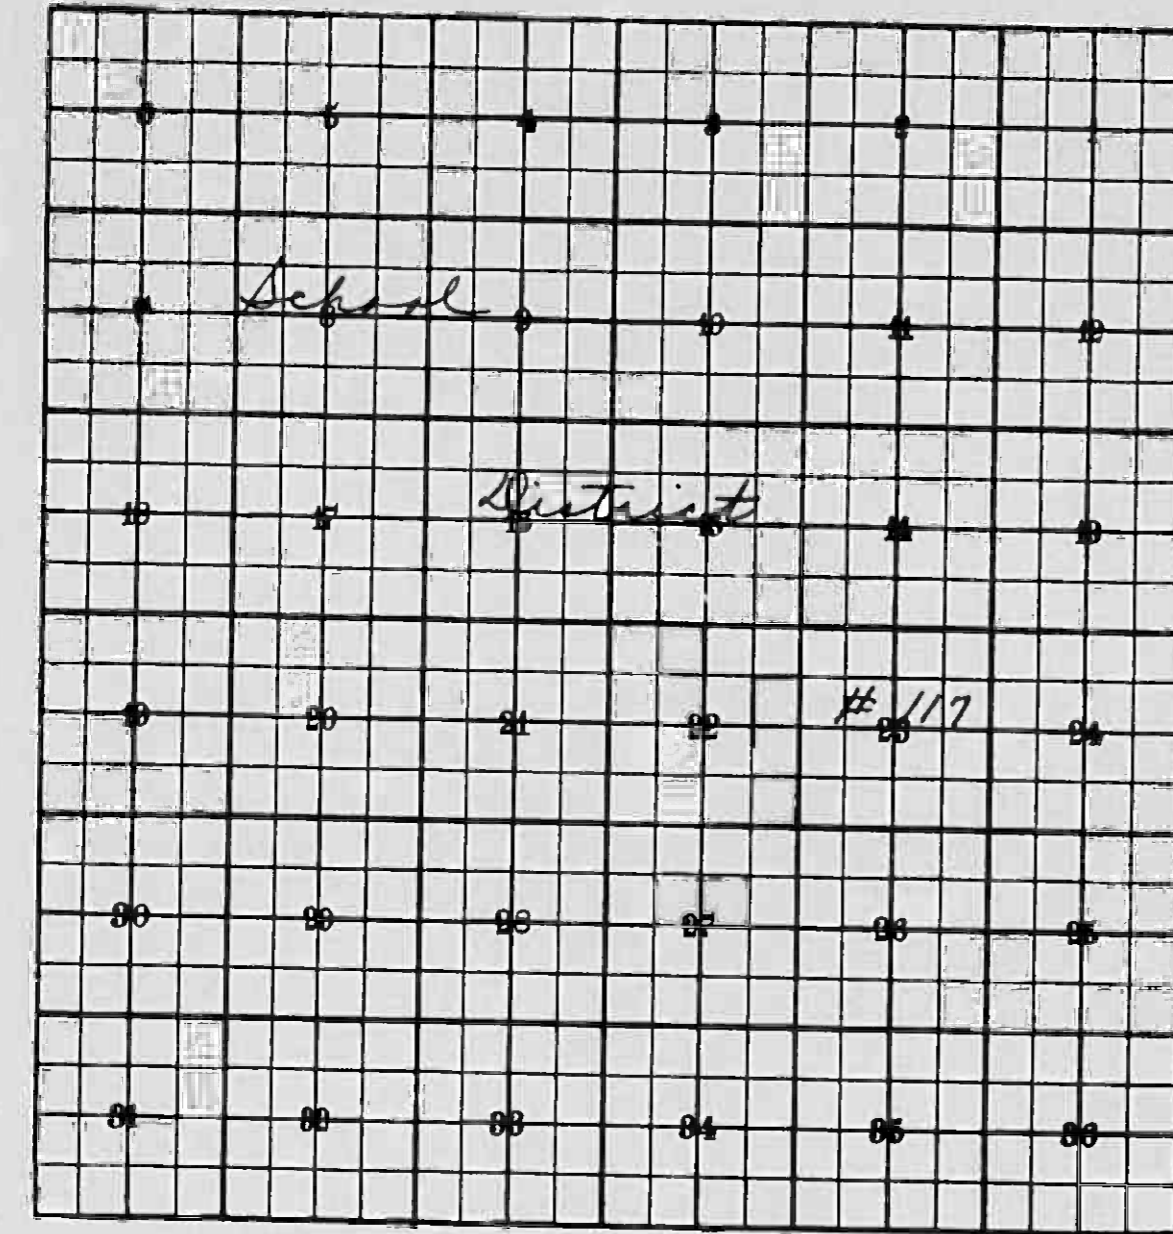 6 5 4 3 2 1
School
7 8 9 10 11 12
District
18 17 16 15 14 13
# 117
19 20 21 22 23 24
30 29 28 27 26 25
31 32 33 34 35 36